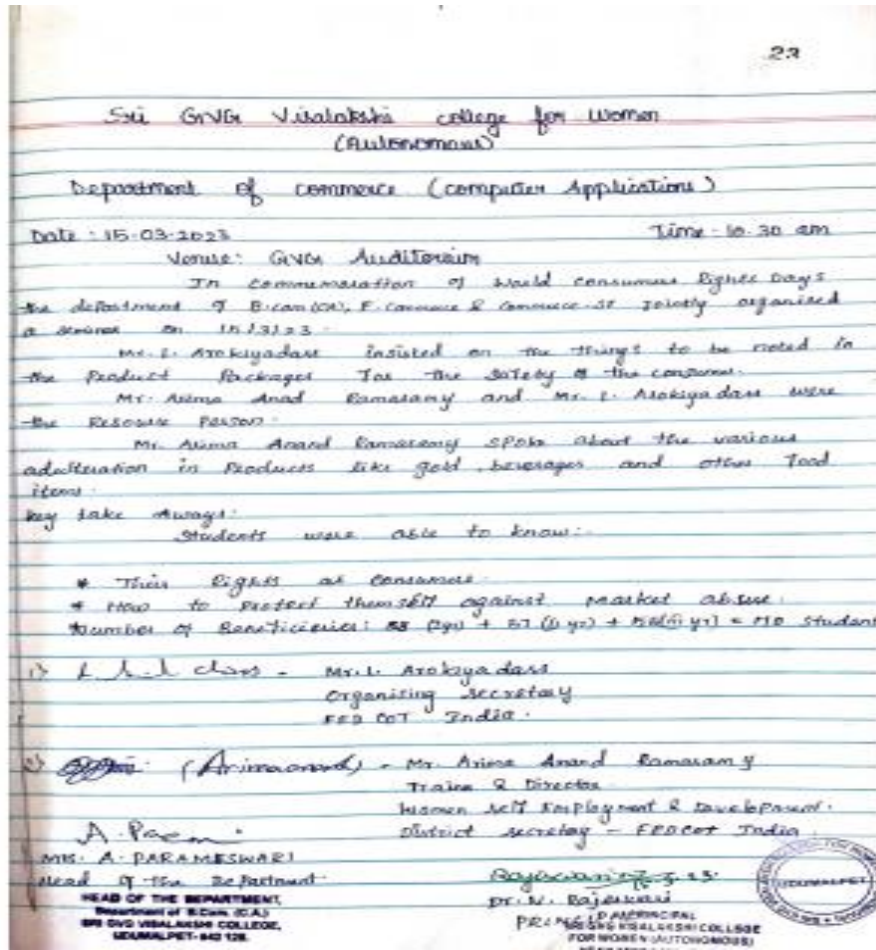 22
Sri GVG Visalakshi college for women
(Autonomous)
Department of commerce (computer Applications)
Date : 15-03-2023 Time - 10.30 am
Venue: GVG Auditorium
In commemoration of World consumers Rights Days
the department of B.com(CA), E.commerce & commerce-SF jointly organised
a seminar on 15/3/23.
Mr. L. Arokiyadass insisted on the things to be noted in
the Product Packages for the safety of the consumer.
Mr. Arima Anad Ramasamy and Mr. L. Arokiyadass were
the Resource Person.
Mr. Arima Anand Ramasamy spoke about the various
adulteration in Products like gold, beverages and other food
items.
key take Aways:
Students were able to know:-
* Their Rights as consumer.
* How to protect themself against market abuse.
*Number of Beneficiaries: + 57 = Student
1) Mr. L. Arokiyadass
Organising secretary
FEDCOT India.
2) (Arimaanand) - Mr. Arima Anand Ramasamy
Trainer & Director
Women self Employment & Development.
District secretary - FEDCOT India.
MRS. A. PARAMESWARI
Head of the Department.
HEAD OF THE DEPARTMENT,
Department of B.Com. (C.A.)
SRI GVG VISALAKSHI COLLEGE,
UDUMALPET-642 128.
Dr. N. Rajeswari
PRINCIPAL
SRI GVG VISALAKSHI COLLEGE
FOR WOMEN (AUTONOMOUS)
UDUMALPET